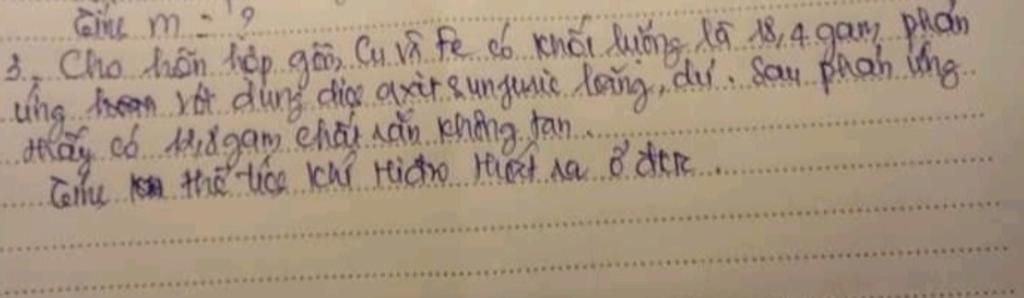 Tính m = ?
3. Cho hỗn hợp gồm Cu và Fe có khối lượng là 18,4 gam phản
ứng với dung dịch axit sunfuric loãng, dư. Sau phản ứng
thấy có gam chất rắn không tan.
Tính thể tích khí Hidro thoát ra ở đktc.